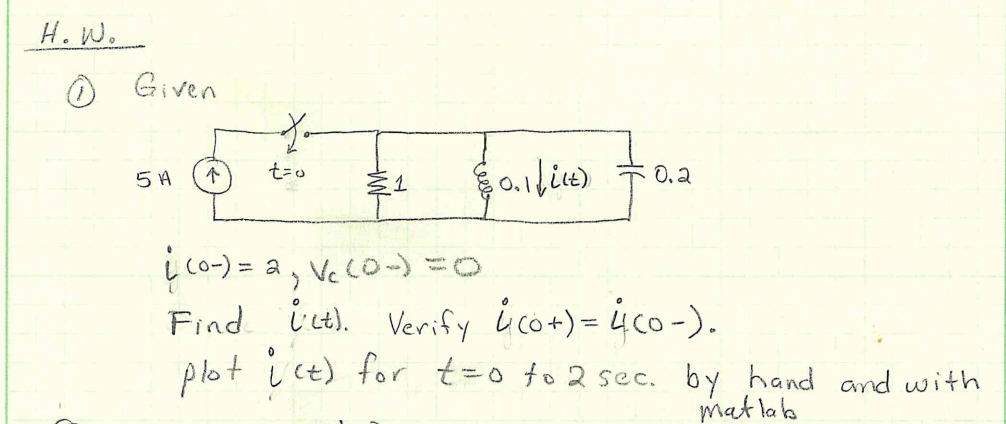 H.W.
① Given
5A
t=0
1
0.1 ↓i(t)
0.2
i(0-) = 2, Vc(0-) = 0
Find i(t). Verify i(0+) = i(0-).
plot i(t) for t=0 to 2 sec. by hand and with
matlab